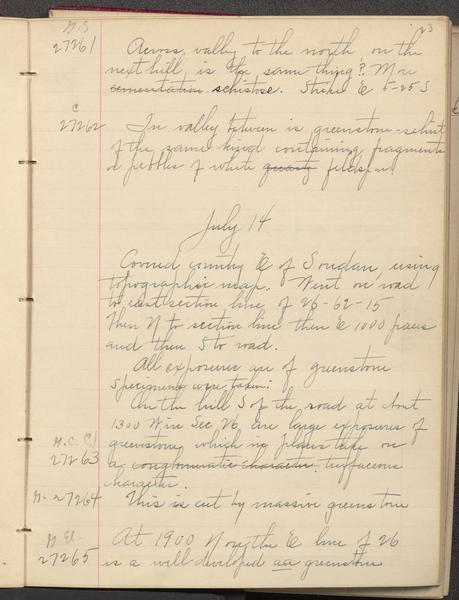 23
G.S.
27261 Across valley to the north on the
next hill, is the same thing? More
cementation schistose. Strike E 5-25 S
C
27262 In valley between is greenstone-schist
of the same kind containing fragments
or pebbles of white quartz feldspar.
July 14
Covered country E of Soudan, using
topographic map. Went on road
to east section line of 26-62-15
Then N to section line then E 1000 paces
and then S to road.
All exposures are of greenstone
Specimens were taken:
On the hill S of the road at about
1300 W in Sec. 26 are large exposures of
greenstone, which in places take on
G.C.Cl
27263 a conglomeratic character. tuffaceous
character.
G. 27264 This is cut by massive greenstone
G.El.
27265 At 1900 N on the E line of 26
is a well developed greenstone